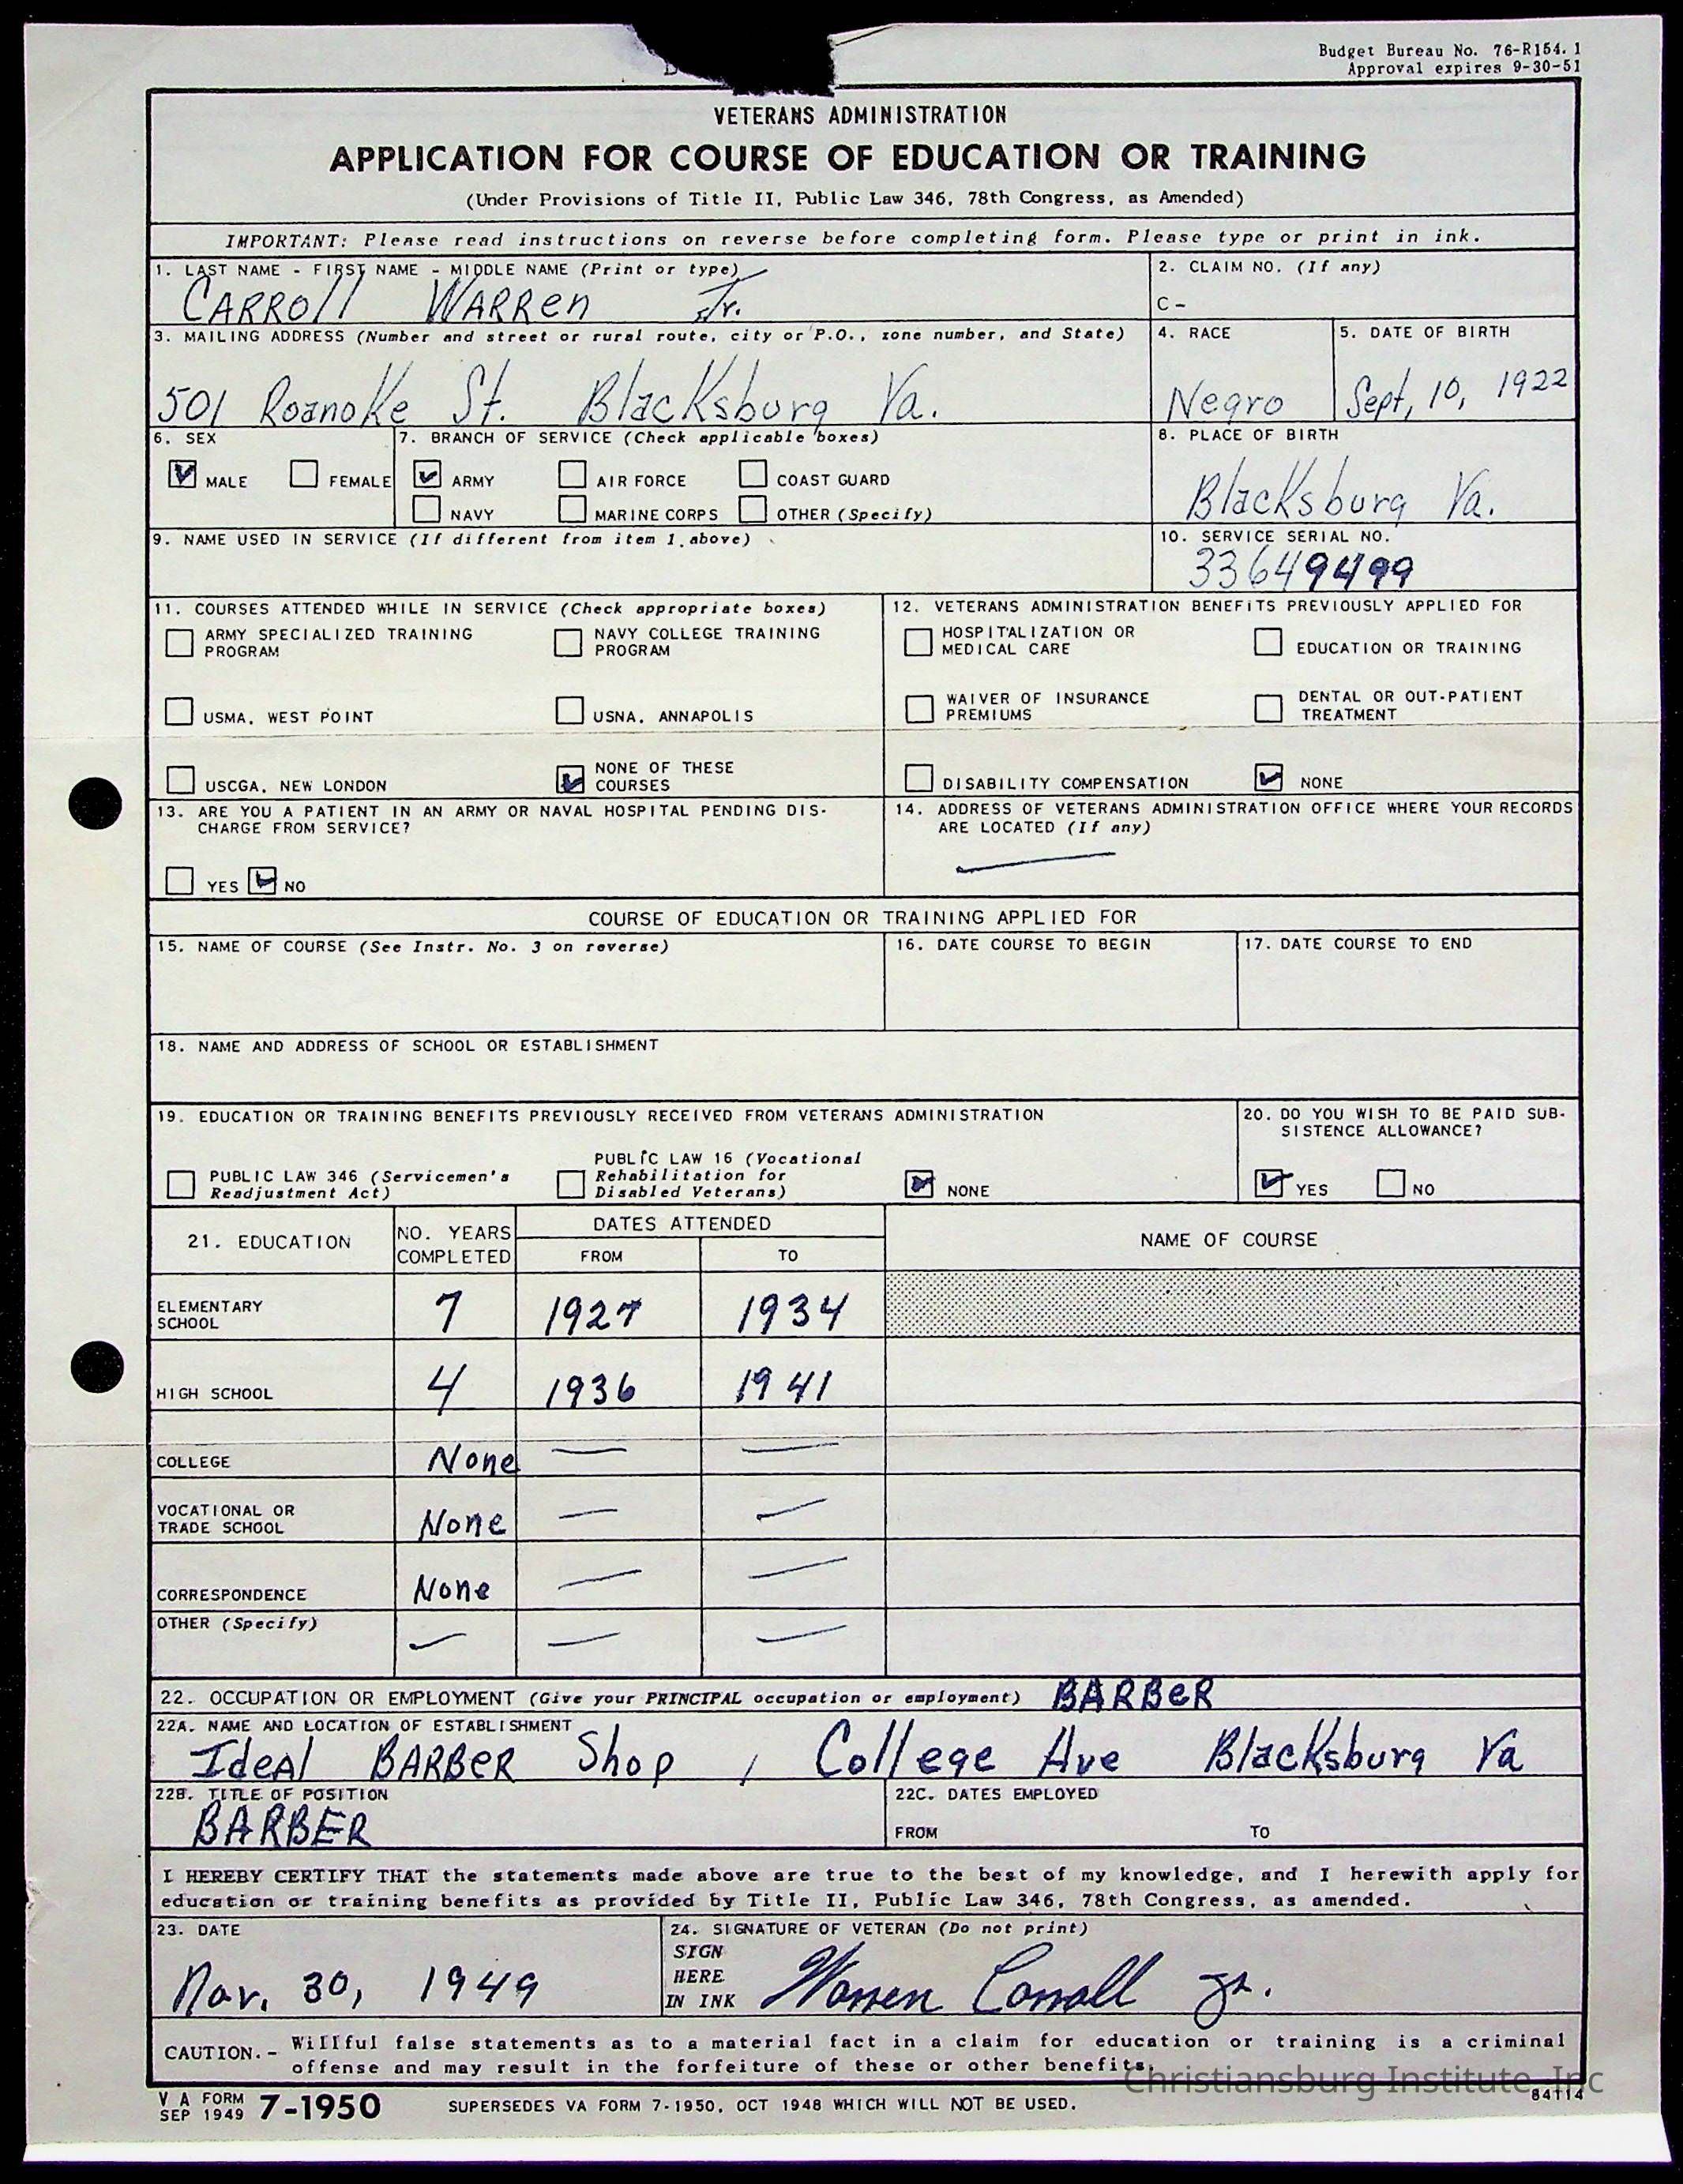 Budget Bureau No. 76-R154.1
Approval expires 9-30-51
VETERANS ADMINISTRATION
APPLICATION FOR COURSE OF EDUCATION OR TRAINING
(Under Provisions of Title II, Public Law 346, 78th Congress, as Amended)
IMPORTANT: Please read instructions on reverse before completing form. Please type or print in ink.
1. LAST NAME - FIRST NAME - MIDDLE NAME (Print or type)
CARROll WARRen Jr.
2. CLAIM NO. (If any)
C-
3. MAILING ADDRESS (Number and street or rural route, city or P.O., zone number, and State)
501 Roanoke St. Blacksburg Va.
4. RACE
Negro
5. DATE OF BIRTH
Sept, 10, 1922
6. SEX
MALE FEMALE
7. BRANCH OF SERVICE (Check applicable boxes)
ARMY AIR FORCE COAST GUARD
NAVY MARINE CORPS OTHER (Specify)
8. PLACE OF BIRTH
Blacksburg Va.
9. NAME USED IN SERVICE (If different from item 1 above)
10. SERVICE SERIAL NO.
33649499
11. COURSES ATTENDED WHILE IN SERVICE (Check appropriate boxes)
ARMY SPECIALIZED TRAINING PROGRAM
NAVY COLLEGE TRAINING PROGRAM
USMA, WEST POINT
USNA, ANNAPOLIS
USCGA, NEW LONDON
NONE OF THESE COURSES
12. VETERANS ADMINISTRATION BENEFITS PREVIOUSLY APPLIED FOR
HOSPITALIZATION OR MEDICAL CARE
EDUCATION OR TRAINING
WAIVER OF INSURANCE PREMIUMS
DENTAL OR OUT-PATIENT TREATMENT
DISABILITY COMPENSATION
NONE
13. ARE YOU A PATIENT IN AN ARMY OR NAVAL HOSPITAL PENDING DIS-
CHARGE FROM SERVICE?
YES NO
14. ADDRESS OF VETERANS ADMINISTRATION OFFICE WHERE YOUR RECORDS
ARE LOCATED (If any)
COURSE OF EDUCATION OR TRAINING APPLIED FOR
15. NAME OF COURSE (See Instr. No. 3 on reverse)
16. DATE COURSE TO BEGIN
17. DATE COURSE TO END
18. NAME AND ADDRESS OF SCHOOL OR ESTABLISHMENT
19. EDUCATION OR TRAINING BENEFITS PREVIOUSLY RECEIVED FROM VETERANS ADMINISTRATION
PUBLIC LAW 346 (Servicemen's
Readjustment Act)
PUBLIC LAW 16 (Vocational
Rehabilitation for
Disabled Veterans)
NONE
20. DO YOU WISH TO BE PAID SUB-
SISTENCE ALLOWANCE?
YES NO
21. EDUCATION
NO. YEARS
COMPLETED
DATES ATTENDED
FROM TO
NAME OF COURSE
ELEMENTARY
SCHOOL
7 1927 1934
HIGH SCHOOL 4 1936 1941
COLLEGE None
VOCATIONAL OR
TRADE SCHOOL
None
CORRESPONDENCE None
OTHER (Specify)
22. OCCUPATION OR EMPLOYMENT (Give your PRINCIPAL occupation or employment) BARBeR
22A. NAME AND LOCATION OF ESTABLISHMENT
IdeAl BARBeR Shop , College Ave Blacksburg Va
22B. TITLE OF POSITION
BARBER
22C. DATES EMPLOYED
FROM TO
I HEREBY CERTIFY THAT the statements made above are true to the best of my knowledge, and I herewith apply for
education or training benefits as provided by Title II, Public Law 346, 78th Congress, as amended.
23. DATE
Nov. 30, 1949
24. SIGNATURE OF VETERAN (Do not print)
SIGN
HERE
IN INK
Warren Carroll Jr.
CAUTION.- Willful false statements as to a material fact in a claim for education or training is a criminal
offense and may result in the forfeiture of these or other benefits.
Christiansburg Institute, Inc
V A FORM
SEP 1949 7-1950
SUPERSEDES VA FORM 7-1950, OCT 1948 WHICH WILL NOT BE USED.
84114